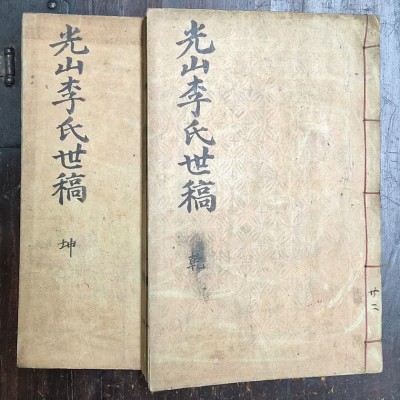 光山李氏世稿
乾
廿二
光山李氏世稿
坤